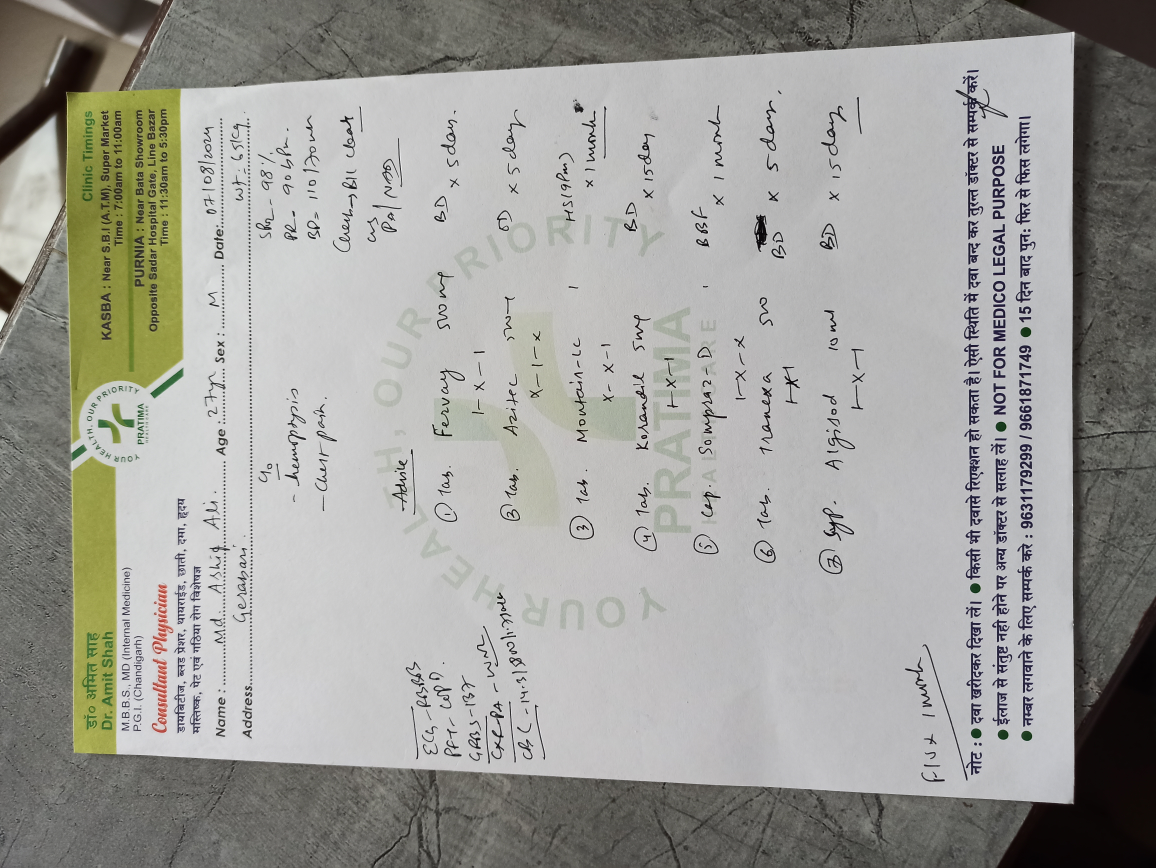 डॉ० अमित साह
Dr. Amit Shah
M.B.B.S., MD (Internal Medicine)
P.G.I. (Chandigarh)
Consultant Physician
डायबिटीज, ब्लड प्रेशर, थायराईड, छाती, दमा, हृदय
मस्तिष्क, पेट एवं गठिया रोग विशेषज्ञ
YOUR HEALTH, OUR PRIORITY
PRATIMA
Clinic Timings
KASBA : Near S.B.I (A.T.M), Super Market
Time : 7:00am to 11:00am
PURNIA : Near Bata Showroom
Opposite Sadar Hospital Gate, Line Bazar
Time : 11:30am to 5:30pm
Name : Md. Ashiq Ali. Age : 27yr Sex : M Date: 07/08/2024
Address Gerabari. wt. 65kg
SPO2 - 98%
PR - 90 bpm.
BP = 110/70
Chest - B/L clear
CVS
PA / NAD
c/o
- hemoptysis
- Chest pain.
ECG - RBBB
PFT -
GRBS - 137
CXR PA - WNL
CBC - 14.3/
Advise
① Tab. Fervay 500mg BD x 5 day.
1-x-1
② Tab. Azitec 500 OD x 5 day
x-1-x
③ Tab. Montain-LC 1 HS (9pm)
x-x-1 x 1 month
④ Tab. Korandil 5mg BD
1-x-1 x 15 day
⑤ Cap. Sompraz-D 1 BBF
1-x-x x 1 month
⑥ Tab. Tranexa 500 BD x 5 day.
1-x-1
⑦ Syp. Algisod 10ml BD x 15 day
1-x-1
YOUR HEALTH, OUR PRIORITY
PRATIMA
HEALTHCARE
F/U x 1 month
नोट : ● दवा खरीदकर दिखा लें। ● किसी भी दवासे रिएक्शन हो सकता है। ऐसी स्थिति में दवा बन्द कर तुरन्त डॉक्टर से सम्पर्क करें।
● ईलाज से संतुष्ट नहीं होने पर अन्य डॉक्टर से सलाह लें। ● NOT FOR MEDICO LEGAL PURPOSE
● नम्बर लगवाने के लिए सम्पर्क करे : 9631179299 / 9661871749 ● 15 दिन बाद पुनः फिर से फिस लगेगा।